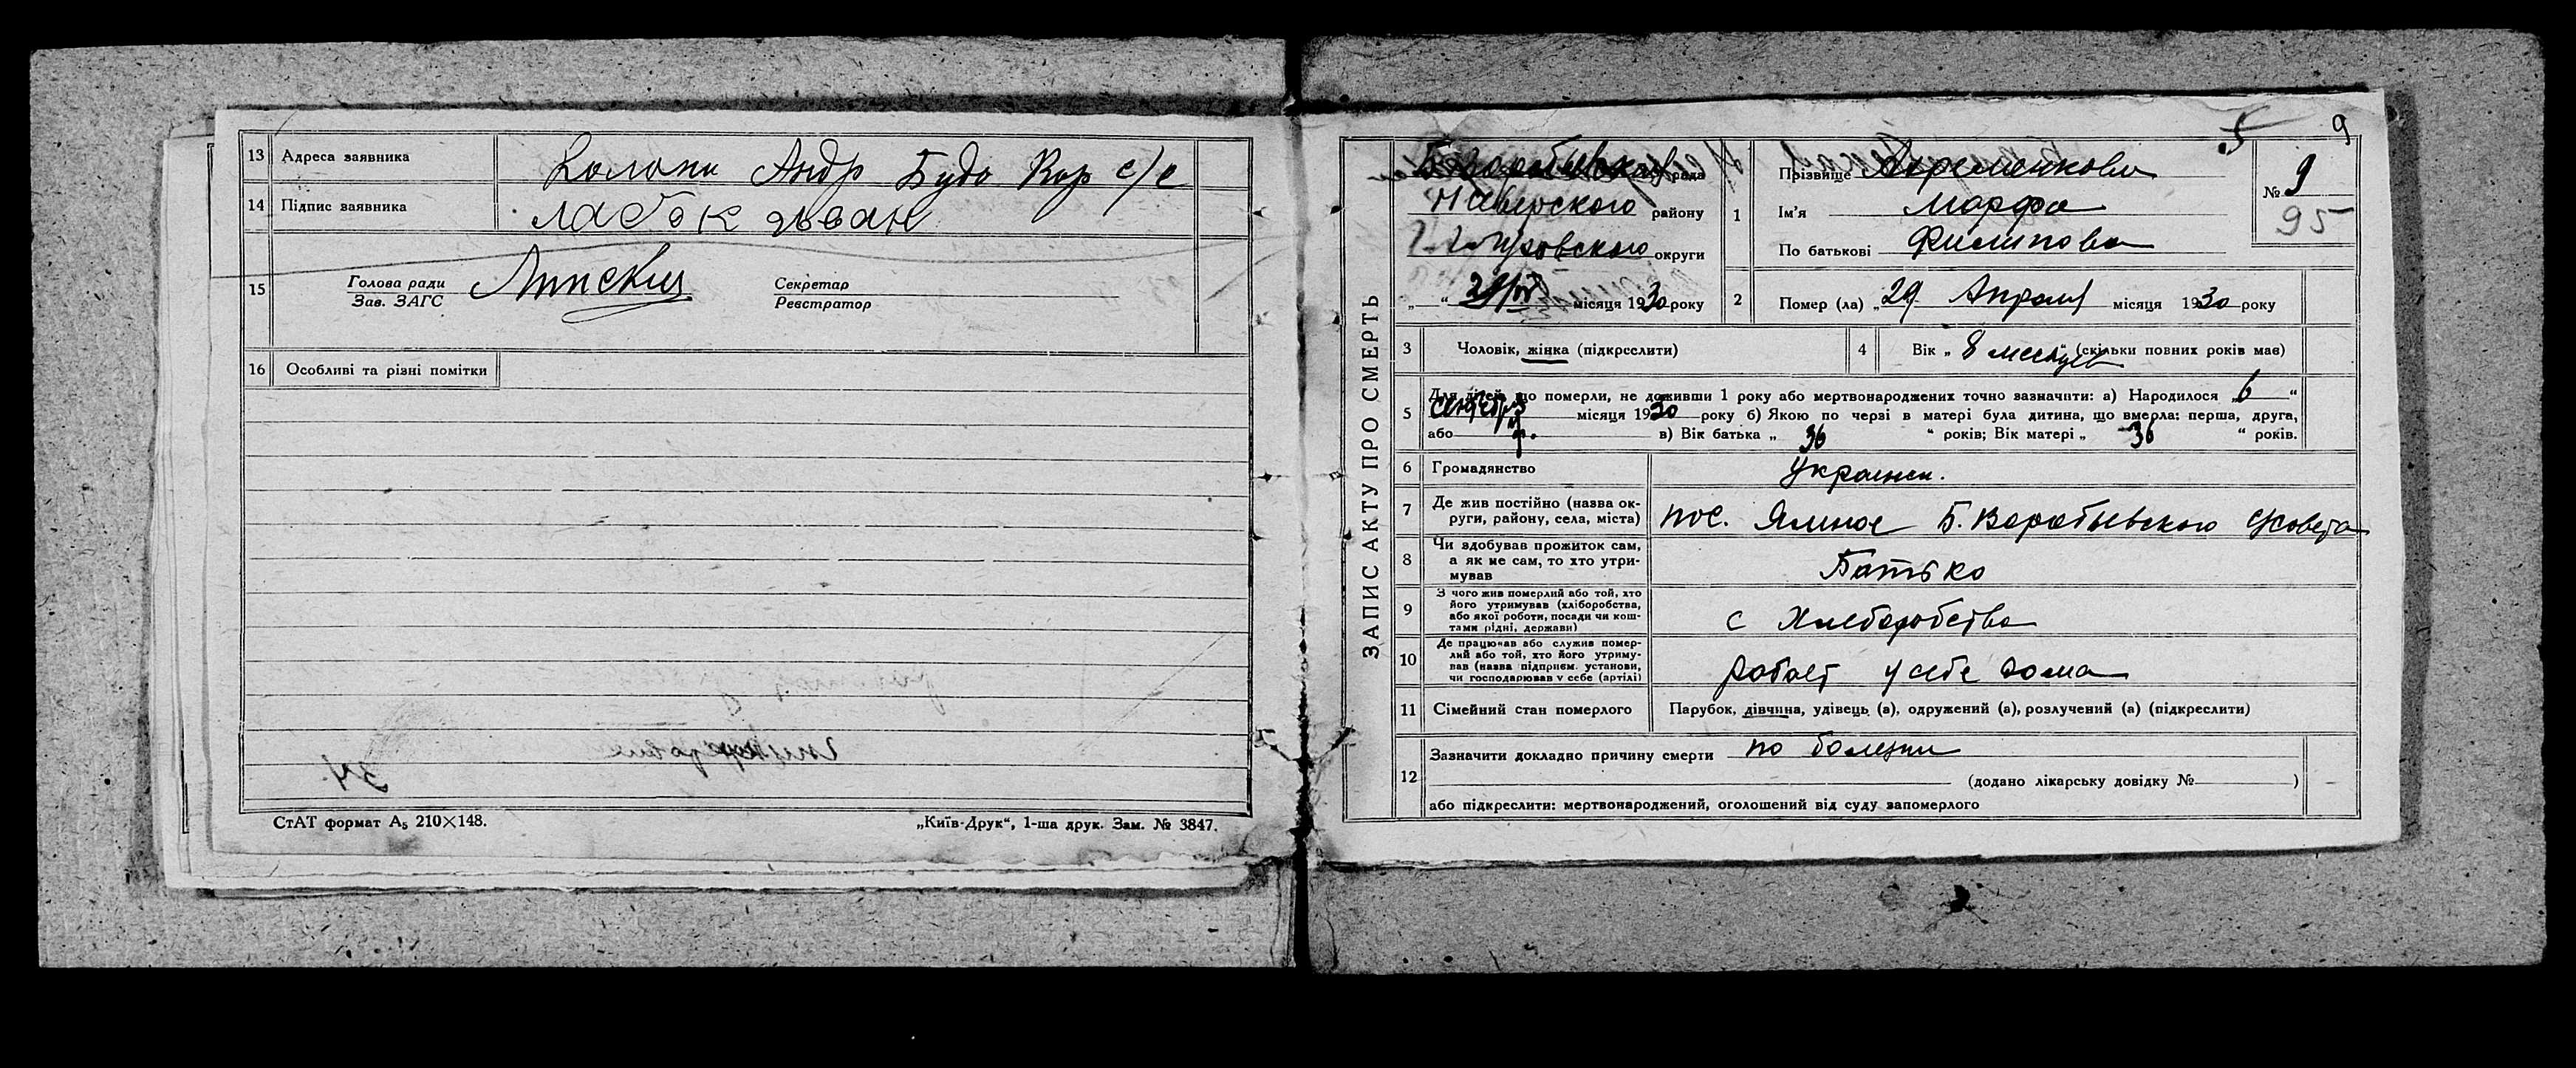 13 Адреса заявника Колони Андр Буда Кор с/с
14 Підпис заявника лабок іван
15 Голова ради
Зав. ЗАГС
Секретар
Реєстратор
16 Особливі та різні помітки
34.
СтАТ формат А5 210×148.
„Київ-Друк“, 1-ша друк. Зам. № 3847.
5 9
ЗАПИС АКТУ ПРО СМЕРТЬ
рада
Н Сіверского району
округи
„ “ 29/IV місяця 1930 року
1 Прізвище
Ім'я Марфа
По батькові Филипова
№ 9
95
2 Помер (ла) „29 Апреля місяця 1930 року
3 Чоловік, жінка (підкреслити)
4 Вік „ 8 месяцев “ (скільки повних років має)
5 Для дітей, що померли, не доживши 1 року або мертвонароджених точно зазначити: а) Народилося „6 “
сентября місяця 1930 року б) Якою по черзі в матері була дитина, що вмерла: перша, друга,
або в) Вік батька „ 36 “ років; Вік матері „ 36 “ років.
6 Громадянство Украинск.
7 Де жив постійно (назва ок-
руги, району, села, міста) пос. Ямное Б. Воробьевского с/совета
8 Чи здобував прожиток сам,
а як не сам, то хто утри-
мував Батько
9 З чого жив померлий або той, хто
його утримував (хліборобства,
або якої роботи, посади чи кош-
тами рідні, держави) с Хлеборобства
10 Де працював або служив помер-
лий або той, хто його утриму-
вав (назва підприєм. установи,
чи господарював у себе (артілі) работ у себе дома
11 Сімейний стан померлого Парубок, дівчина, удівець (а), одружений (а), розлучений (а) (підкреслити)
12 Зазначити докладно причину смерти по болезни
(додано лікарську довідку № )
або підкреслити: мертвонароджений, оголошений від суду запомерлого